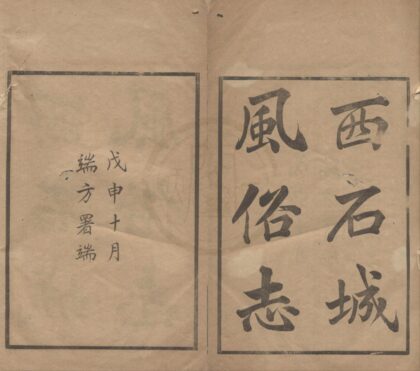 西石城
風俗志
戊申十月
端方署端